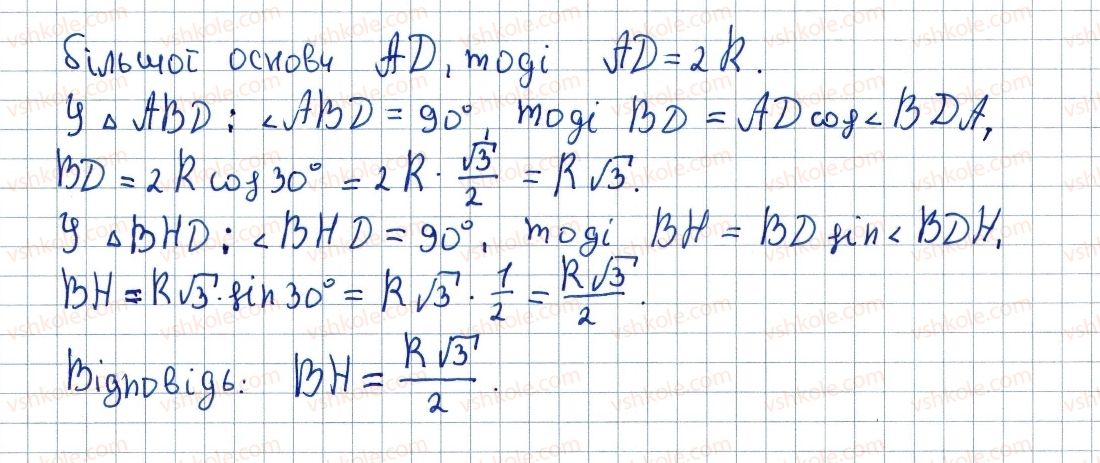 більшої основи AD, тоді AD = 2R.
У △ABD: <ABD = 90°, тоді BD = AD cos< BDA,
BD = 2R cos 30° = 2R · √3/2 = R√3.
У △BHD: <BHD = 90°, тоді BH = BD sin< BDH,
BH = R√3 · sin 30° = R√3 · 1/2 = R√3/2.
Відповідь: BH = R√3/2.